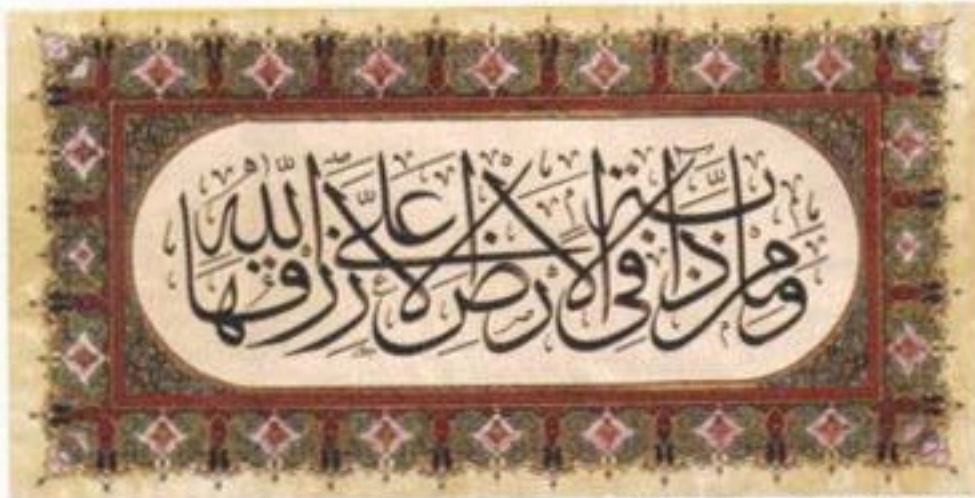 وما من دابة في الأرض إلا على الله رزقها